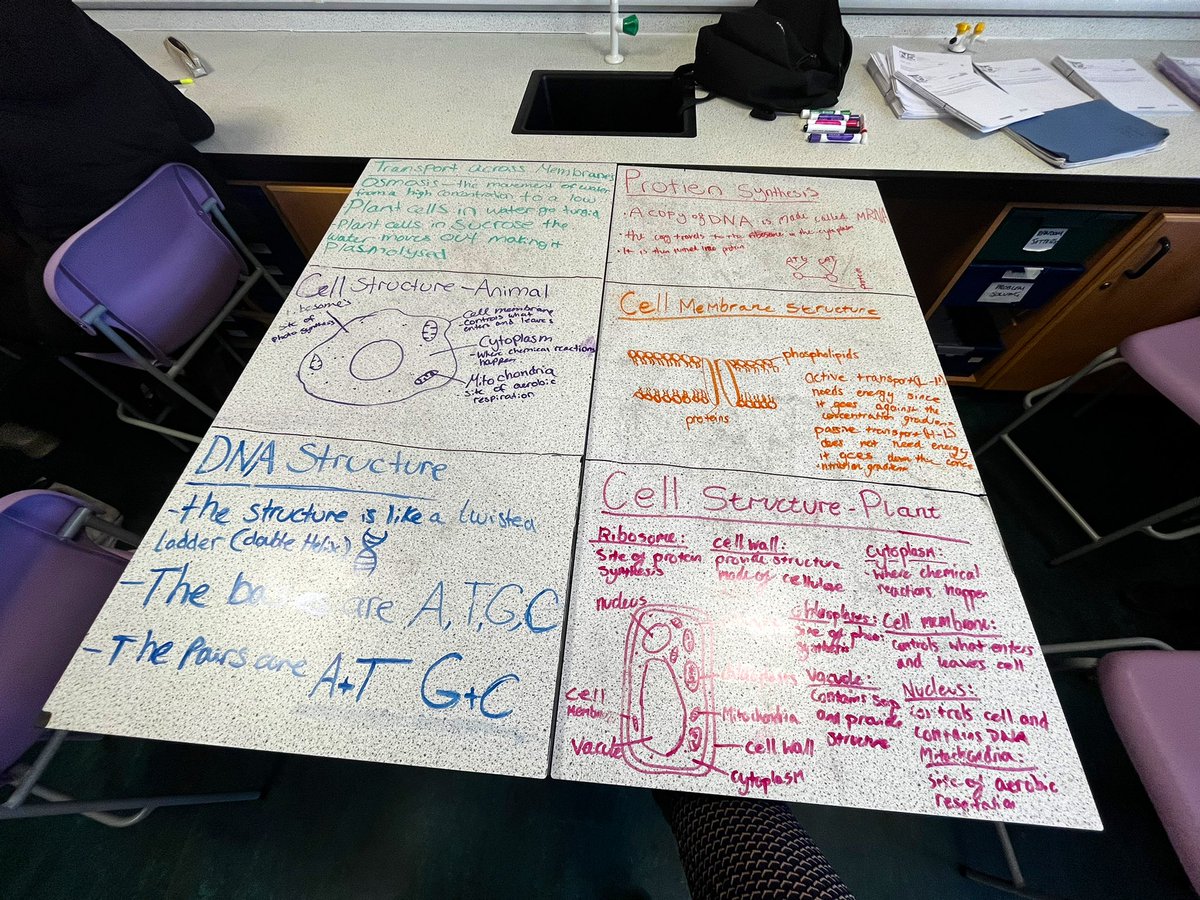 Transport across Membranes
Osmosis - the movement of water
from a high concentration to a low
Plant cells in water go turgid
-Plant cells in sucrose the
water moves out making it
Plasmolysed
Protien Synthesis
• A copy of DNA is made called MRNA
• the copy travels to the ribosome in the cytoplasm
• It is then turned into protein
Cell Structure - Animal
site of
Photosynthesis
Cell membrane
- controls what
enters and leaves
Cytoplasm
- where chemical reactions
happen
Mitochondria
site of aerobic
respiration
Cell Membrane Structure
phospholipids
proteins
active transport
needs energy since
it goes against the
concentration gradient
passive transport (H-L)
does not need energy
it goes down the conce
ntration gradient
DNA Structure
- the structure is like a twisted
ladder (double Helix)
- The bases are A,T,G,C
- The Pairs are A+T G+C
Cell Structure - Plant
Ribosome:
Site of protein
synthesis
cell wall:
provide structure
made of cellulae
Cytoplasm:
where chemical
reactions happen
site of
Cell membrane:
controls what enters
and leaves cell
Vacuole:
contains sap
and provide
structure
Nucleus:
controls cell and
contains DNA
Mitochondria:
site of aerobic
respiration
nucleus
cell
Membrane
Vacuole
Mitochondria
cell wall
cytoplasm
RANDOM
PROBLEM
SOLVING